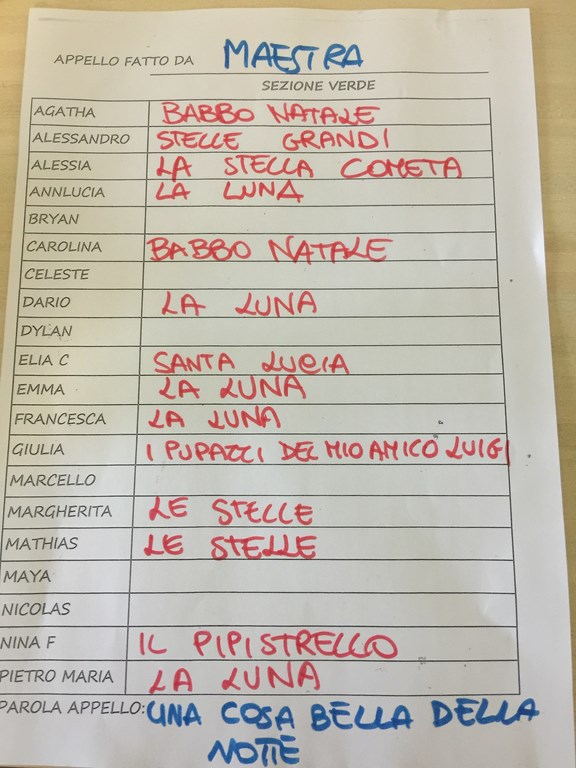 APPELLO FATTO DA MAESTRA
SEZIONE VERDE
AGATHA BABBO NATALE
ALESSANDRO STELLE GRANDI
ALESSIA LA STELLA COMETA
ANNLUCIA LA LUNA
BRYAN
CAROLINA BABBO NATALE
CELESTE
DARIO LA LUNA
DYLAN
ELIA C SANTA LUCIA
EMMA LA LUNA
FRANCESCA LA LUNA
GIULIA I PUPAZZI DEL MIO AMICO LUIGI
MARCELLO
MARGHERITA LE STELLE
MATHIAS LE STELLE
MAYA
NICOLAS
NINA F IL PIPISTRELLO
PIETRO MARIA LA LUNA
PAROLA APPELLO: UNA COSA BELLA DELLA
NOTTE